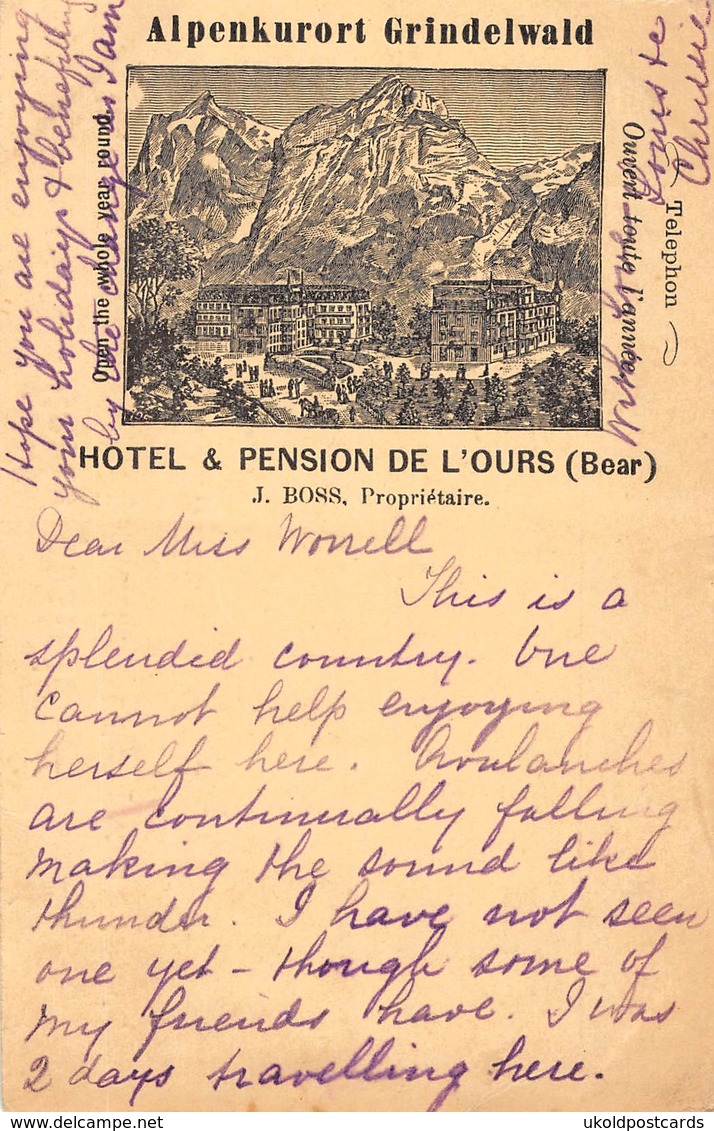 Alpenkurort Grindelwald
Open the whole year round.
Ouvert toute l'année.
Telephon
HOTEL & PENSION DE L'OURS (Bear)
J. BOSS, Propriétaire.
Dear Miss Worrell
This is a
splendid country. One
cannot help enjoying
herself here. Avalanches
are continually falling
making the sound like
thunder. I have not seen
one yet - though some of
my friends have. I was
2 days travelling here.
Hope you are enjoying
your holidays & benefiting
by the change as I am
Chrissie
ukoldpostcards